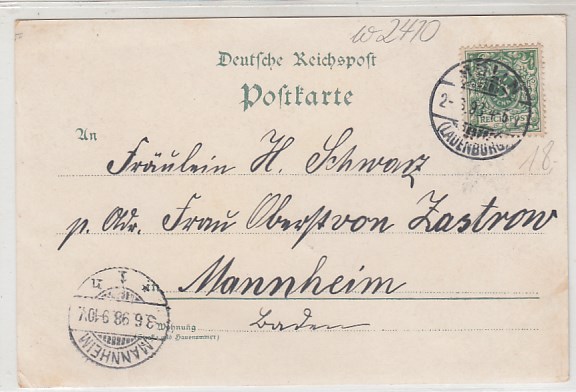 w 2410
Deutsche Reichspost
Postkarte
An
Fräulein H. Schwarz
p. Adr. Frau Oberst von Zastrow
Mannheim
Baden
Wohnung
(Straße und Hausnummer)
REICHSPOST
(LAUENBURG
18.
3.6.98.9-10V.
MANNHEIM